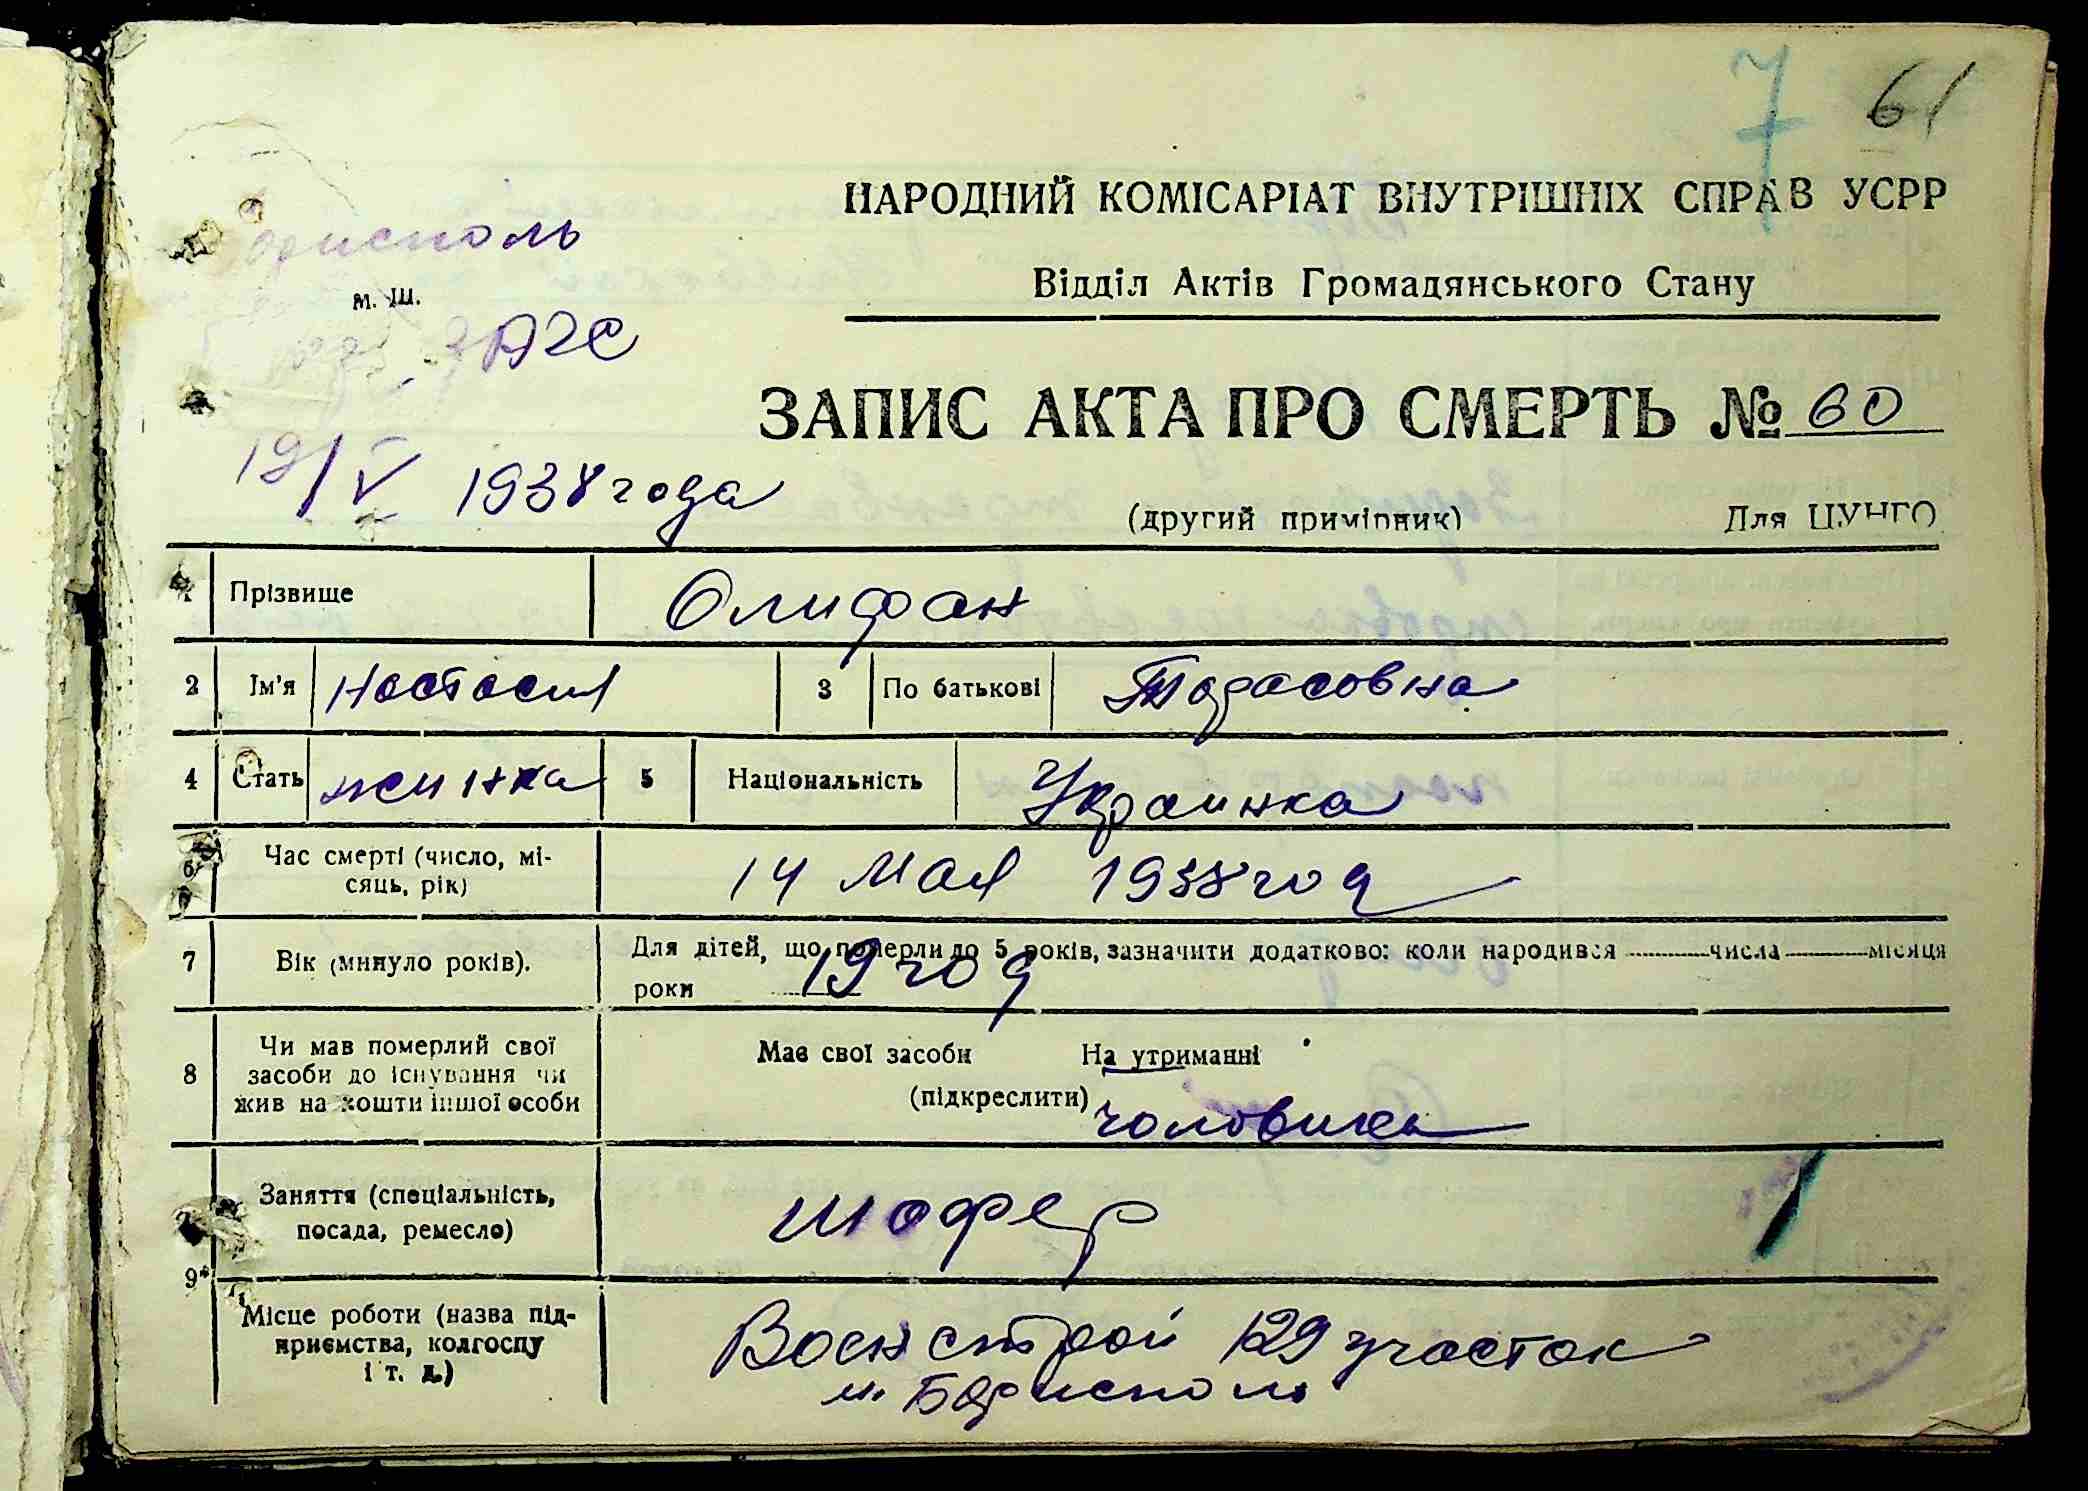 7 61
НАРОДНИЙ КОМІСАРІАТ ВНУТРІШНІХ СПРАВ УСРР
Відділ Актів Громадянського Стану
Борисполь
м. Ш.
ЗАГС
ЗАПИС АКТА ПРО СМЕРТЬ № 60
19/V 1938 года
(другий примірник) Для ЦУНГО
1 Прізвище Олифан
2 Ім'я Настасия 3 По батькові Тарасовна
4 Стать жинка 5 Національність Украинка
6 Час смерті (число, мі-
сяць, рік) 14 мая 1938 год
7 Вік (минуло років). Для дітей, що померли до 5 років, зазначити додатково: коли народився числа місяця
роки 19 год
8 Чи мав померлий свої
засоби до існування чи
жив на кошти іншої особи
Має свої засоби На утриманні
(підкреслити) чоловика
9* Заняття (спеціальність,
посада, ремесло) шофер
Місце роботи (назва під-
приємства, колгоспу
і т. д.)
Военстрой 129 участок
м. Борисполь